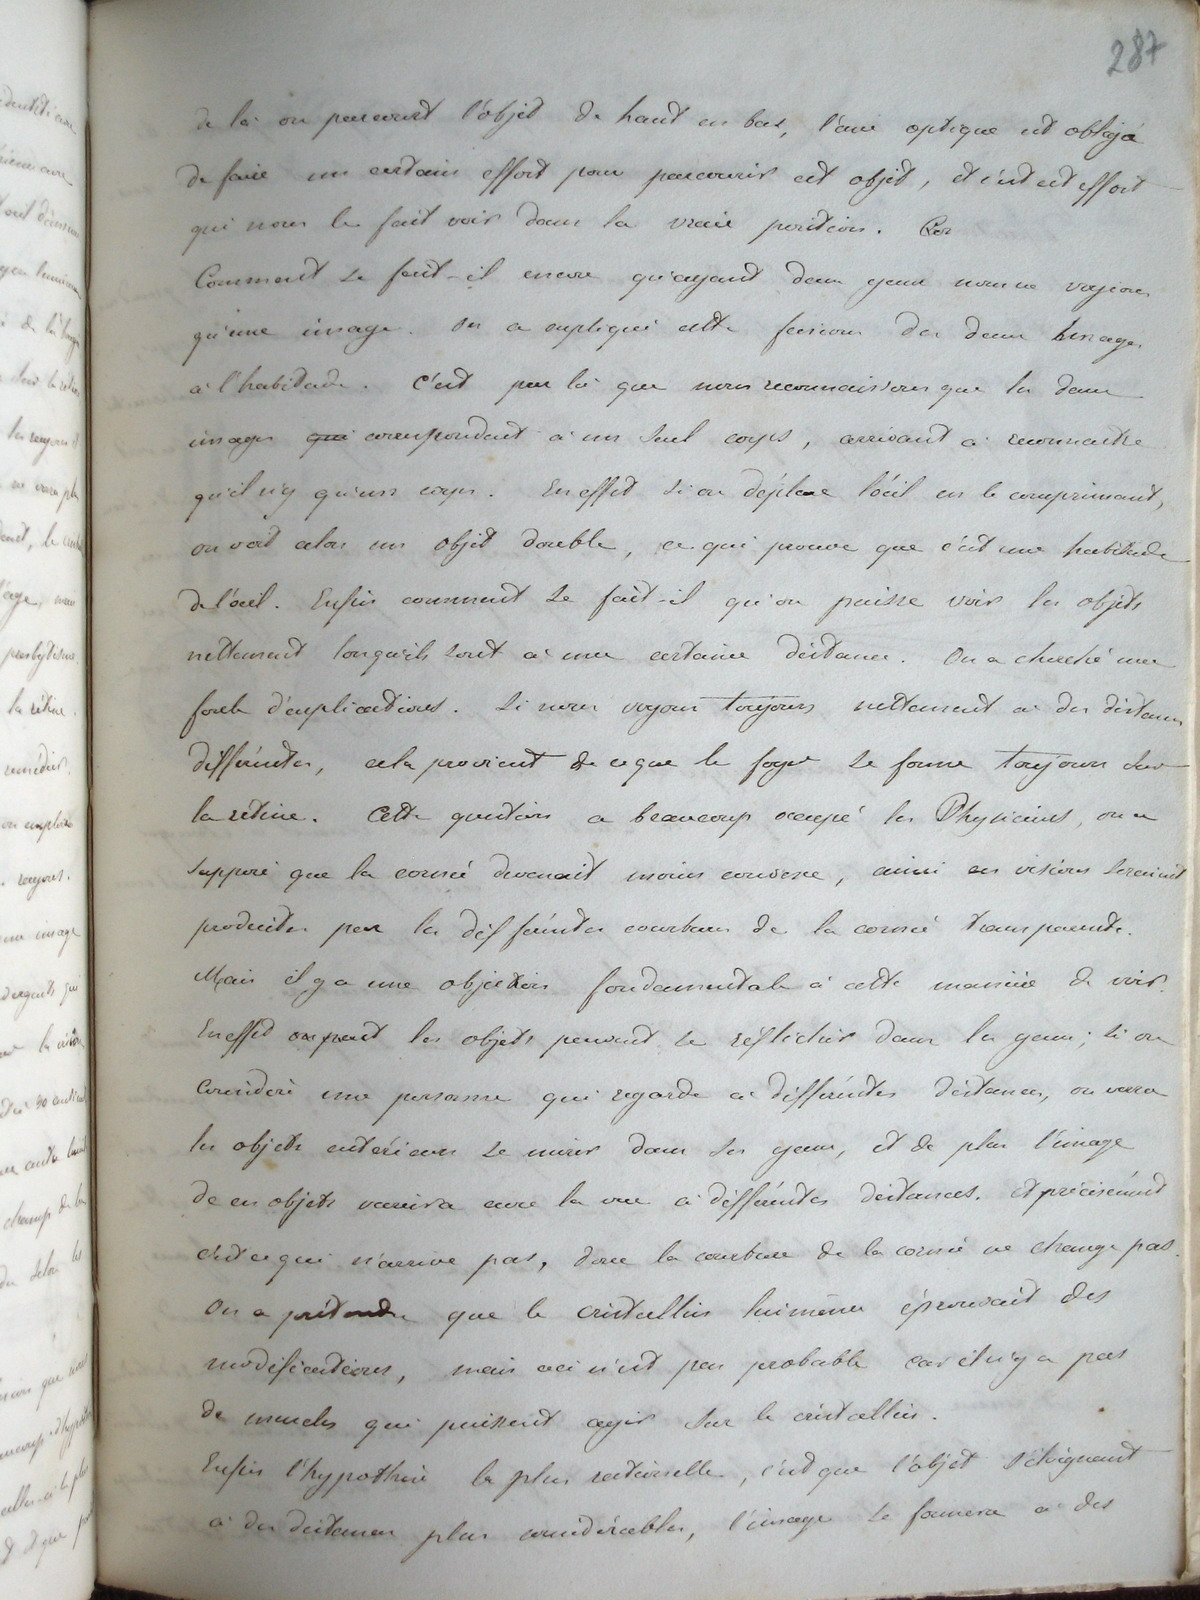 287
de là on parcourt l'objet de haut en bas, l'axe optique est obligé
de faire un certain effort pour parcourir cet objet, et c'est cet effort
qui nous le fait voir dans la vraie position. Car
Comment se fait-il encore qu'ayant deux yeux nous ne voyions
qu'une image. On a expliqué cette fusion des deux images
à l'habitude. C'est par là que nous reconnaissons que les deux
images qui correspondent à un seul corps, arrivant à reconnaitre
qu'il n'y qu'un corps. En effet si on déplace l'œil en le comprimant,
on voit alors un objet double, ce qui prouve que c'est une habitude
de l'œil. Enfin comment se fait-il qu'on puisse voir les objets
nettement lorsqu'ils sont à une certaine distance. On a cherché une
foule d'explications. Si nous voyons toujours nettement à des distances
différentes, cela provient de ce que le foyer se forme toujours sur
la rétine. Cette question a beaucoup occupé les Physiciens, on a
supposé que la cornée devenait moins convexe, ainsi ces visions seraient
produites par les différentes courbures de la cornée transparente.
Mais il y a une objection fondamentale à cette manière de voir.
En effet les objets peuvent se réfléchir dans les yeux; si on
considère une personne qui regarde à différentes distances, on verra
les objets extérieurs se mirer dans ses yeux, et de plus l'image
de ces objets variera avec la vue à différentes distances. et précisément
c'est ce qui n'arrive pas, donc la courbure de la cornée ne change pas.
On a prétendu que le cristallin lui même éprouvait des
modifications, mais ceci n'est pas probable car il n'y a pas
de muscles qui puissent agir sur le cristallin.
Enfin l'hypothèse la plus rationnelle, c'est que l'objet s'éloignant
à des distances plus considérables, l'image se formera à des